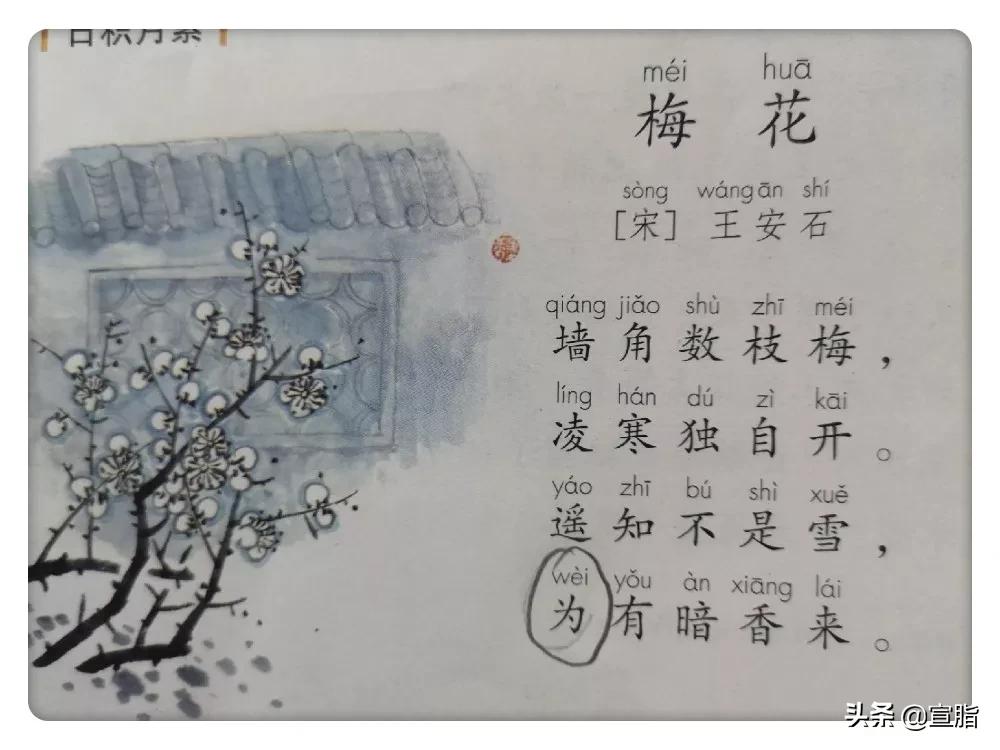 日积月累
méi huā
梅花
sòng wáng ān shí
[宋] 王安石
qiáng jiǎo shù zhī méi
墙角数枝梅，
líng hán dú zì kāi
凌寒独自开。
yáo zhī bú shì xuě
遥知不是雪，
wèi yǒu àn xiāng lái
为有暗香来。
头条 @宣脂